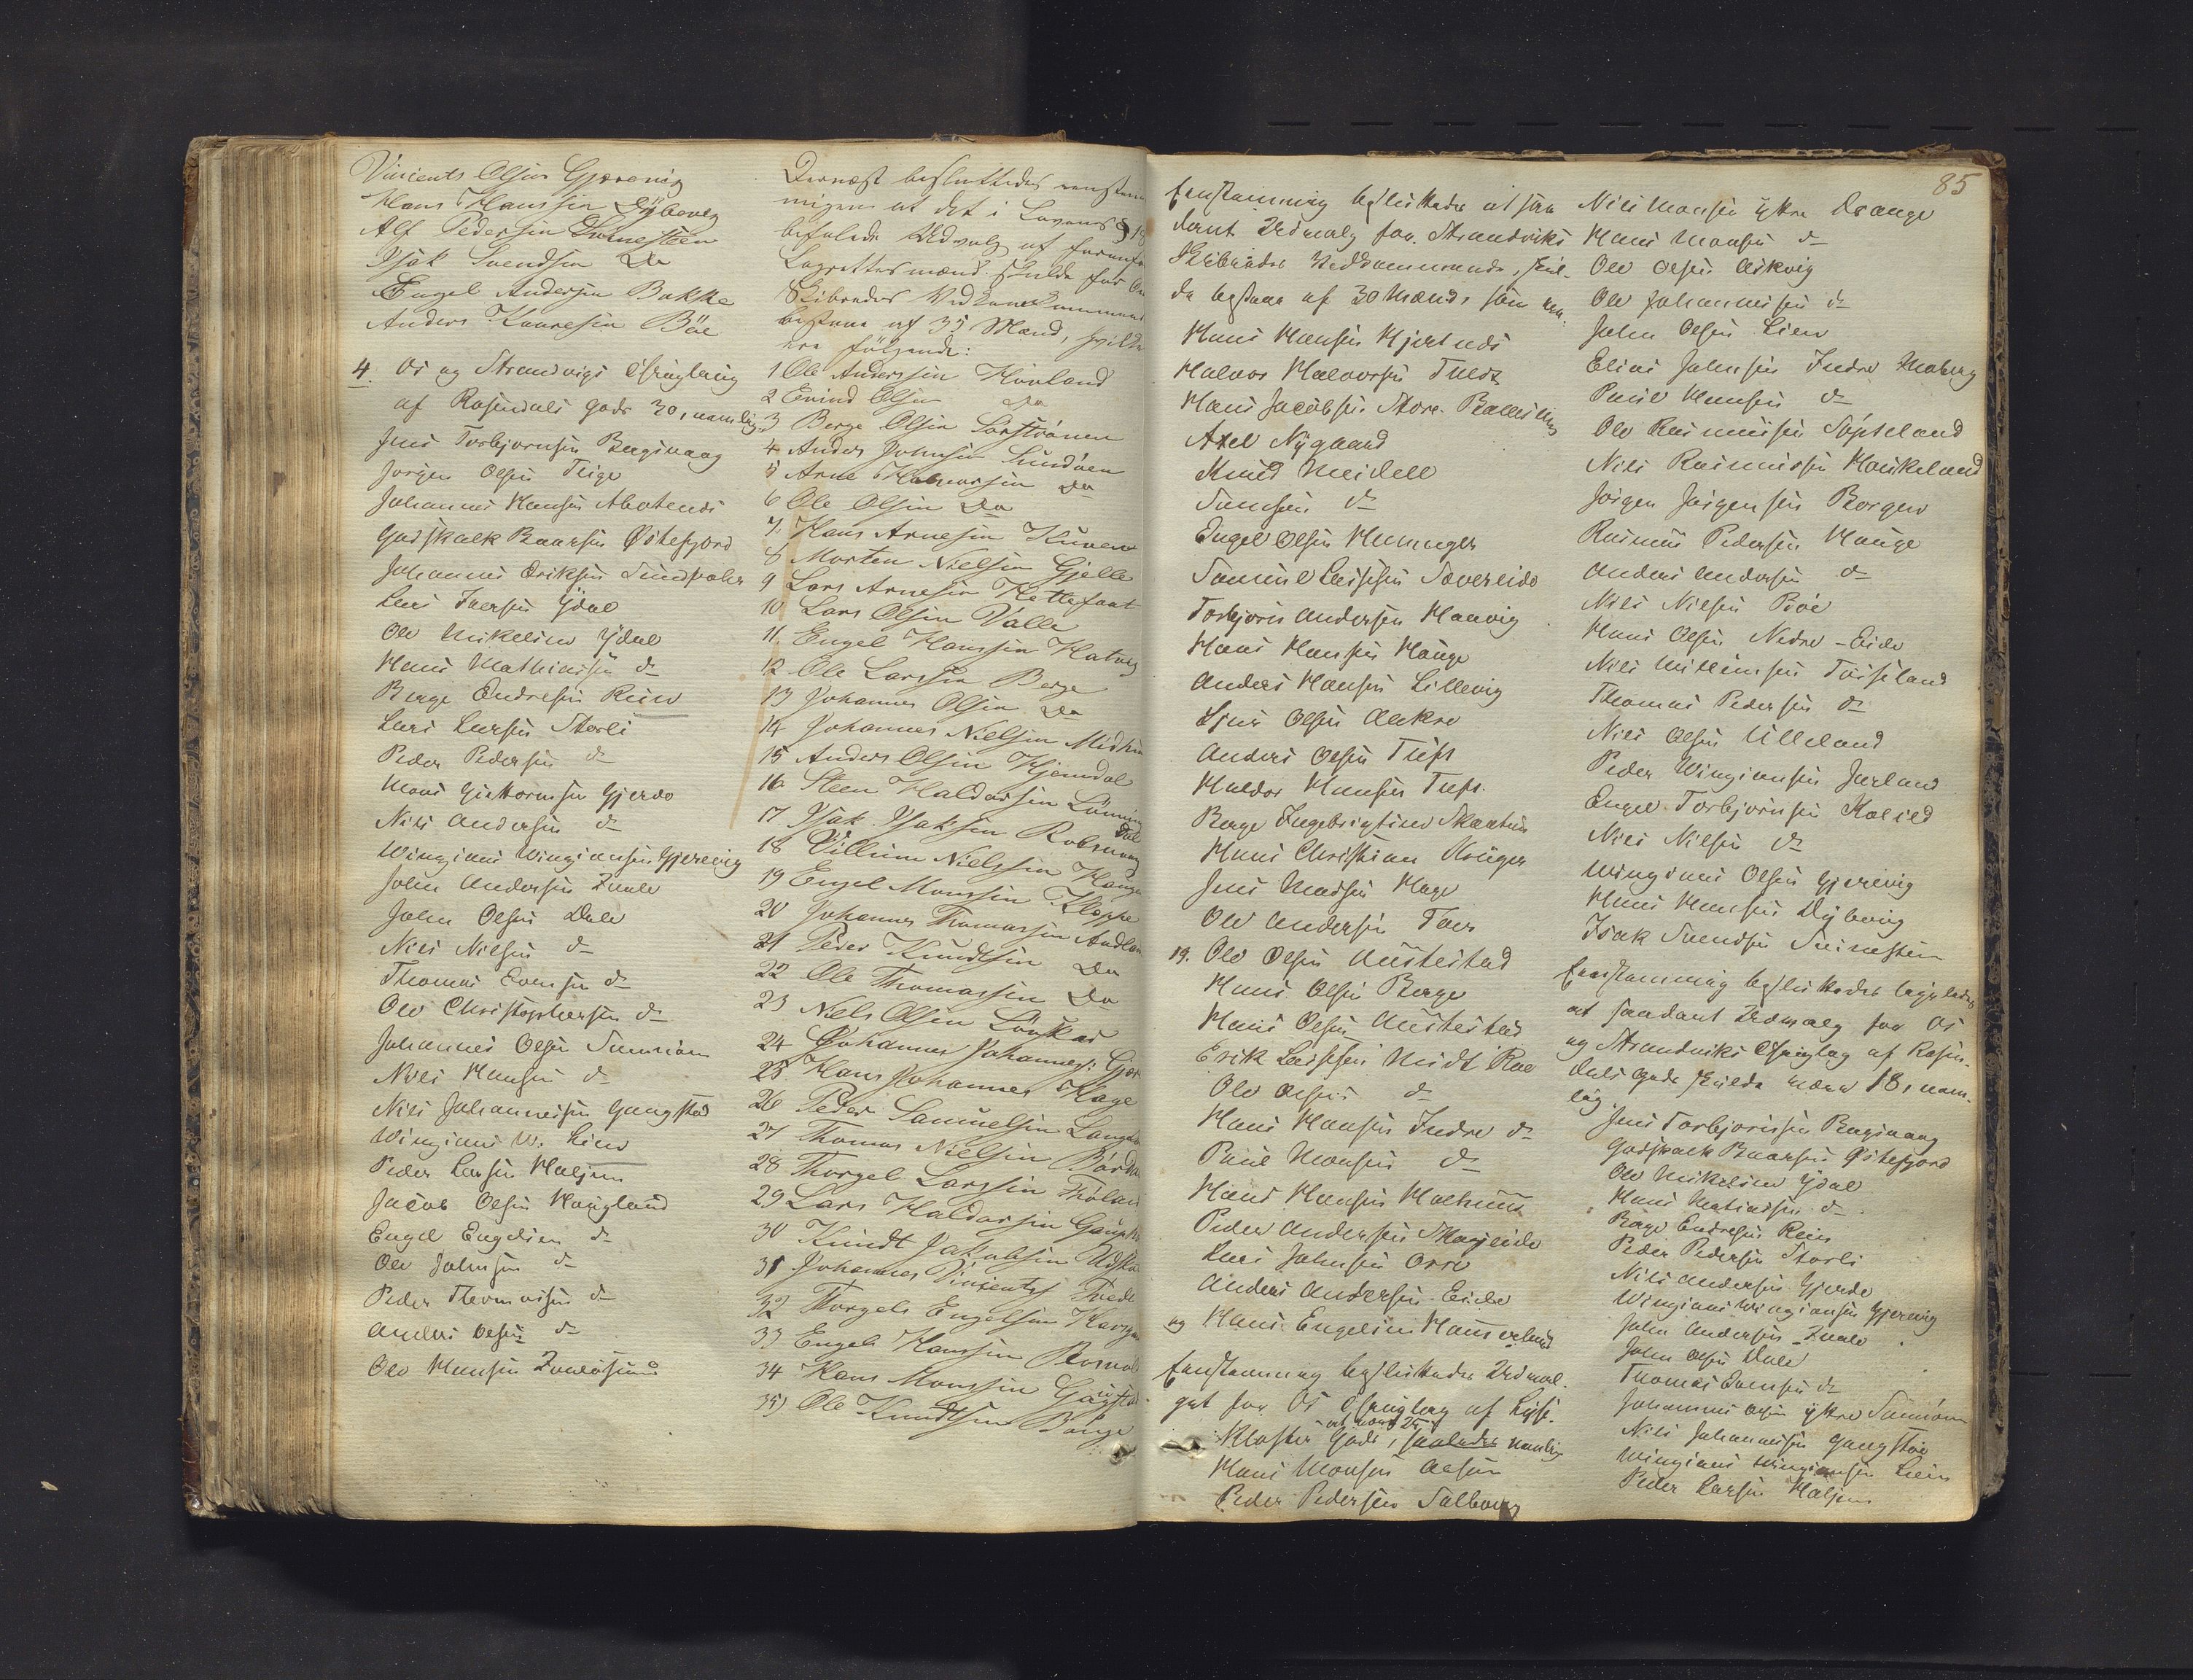 Vincents Olsen Gjerevig
Hans Hanssen Dybevig
Alf Pedersen Svinesteen
Isak Svendsen Do
Engel Andersen Bakke
Anders Knuresen Böe
4. Os og Strandvigs Thinglaug
af Rosendals Gods 30, namlig:
Jens Torbjørnsen Bagevaag
Jørgen Olsen Teige
Johannes Hansen
Godskalk Baarsen Østefjord
Johannes Eriksen Sundvoler
Lars Iversen Ydal
Ole Mikelsen Ydal
Hans Mathiassen do
Børge Endresen Rein
Lars Larsen Storli
Peder Pedersen do
Mons Guttormsen Gjerde
Nils Andersen do
Wingians Wingiansen Gjerevig
John Andersen Duale
John Olsen Dale
Nils Nilsen do
Thomas Evensen do
Ole Christophersen do
Johannes Olsen Samnøen
Nils Hansen do
Nils Johannessen Gangstøe
Wingians W. Lien
Peder Larsen Haljem
Jacob Olsen Hougland
Engel Engelsen do
Ole Johnsen do
Peder Thomassen do
Anders Olsen do
Ole Hansen
Dernæst besluttedes eenstem
migen at det i Lovens § 18
befalede Udvalg af foranf
Lagrettesmænd skulde for Os
Skibredes Vedkommende
bestaae af 35 Mænd, hvilke
ere følgende:
1 Ole Anderssen Hovland
2 Eivind Olsen Do
3 Berge Olsen Sørstrønen
4 Anders Johnsen Sundøen
5 Arne Halvorsen Do
6 Ole Olsen Do
7. Hans Arnesen Kuven
8 Morten Nielsen Gjelle
9 Lars Arnesen Hettefaat
10 Lars Olsen Valle
11. Engel Hanssen Hatvig
12 Ole Larssen Berge
13 Johannes Olsen Do
14 Johannes Nielsen Midhu
15 Anders Olsen Hjemdal
16 Steen Haldorsen Lønning
dal
17 Isak Isaksen Rolsvaag
18 Villum Nielssen Hauge
19 Engel Monssen Kloppe
20 Johannes Thomassen Andlan
21 Peder Knudtsen Do
22 Ole Thomassen Do
23 Niels Olsen Lönskar
24 Johannes Johannes: Gjer
25 Hans Johannes Hage
26 Peder Samuelsen Lang
27 Thomas Nielsen Børda
28 Thorgel Larssen
29 Lars Haldorsen
30 Knudt Jakobsen Udska
31 Johannes Vincents Tvedt
32 Thorgels Engelsen
33 Engels Hanssen
34 Hans Monssen Gaasta
35) Ole Knudtsen Bönge
85
Eenstemmig besluttedes at saa
dant Udvalg for Strandviks
Skibredes Vedkommende, skul-
de bestaae af 30 Mænd, som ere.
Hans Hansen Hjertnes
Halvor Halvorsen Tuft
Hans Jacobsen Store Ballesem
Axel Nygaard
Knud Meidell
Samsen do
Engel Olsen Humleger
Samuel Lassesen Sævereide
Torbjørn Andersen Haavig
Hans Hansen Hauge
Anders Hansen Lillevig
Sjur Olsen Aakre
Anders Olsen Tuft
Haldor Hansen Tuft.
Berge Ingebrigtsen Skaatun
Hans Christian Krüger
Jens Madsen Hage
Ole Andersen Traa
19. Ole Olsen Austestad
Hans Olsen Berge
Hans Olsen Austestad
Erik Lassesen Midt Bae
Ole Olsen do
Hans Hansen Indre do
Paul Monsen do
Hans Hansen Holthus
Peder Andersen Skogseide
Lars Johnsen Orre
Anders Andersen Eide
og Hans Engelsen Hauserland
Eenstemmig besluttedes Udval-
get for Os Thinglag af Lyse-
at være 25
Kloster Gods, saaledes namlig
Hans Monsen Aasen
Peder Pedersen Salberg
Nils Monsen Ytre Drange
Hans Monsen do
Ole Olsen Askvig
Ole Johannessen do
John Olsen Lien
Elias Johnsen Indre Moberg
Paul Hansen do
Ole Rasmussen Søfteland
Nils Rasmussen Haukeland
Jørgen Jørgensen Borgen
Rasmus Pedersen Hauge
Anders Andersen do
Nils Nilsen Bøe
Hans Olsen Nedre-Eide
Nils Willumsen Tøsseland
Thomas Pedersen do
Nils Olsen Ulleland
Peder Wingiansen Jarland
Engel Torbjørnsen Kolsild
Nils Nilsen do
Wingians Olsen Gjerevig
Hans Hansen Dybevig
Isak Svendsen Svinesteen
Eenstemmig besluttedes ligeledes
at saadant Udvalg for Os
og Strandviks Thinglag af Rosen-
dals Gods skulde være 18, nam-
lig
Jens Torbjørnsen Bagevaag
Godskalk Baarsen Østefjord
Ole Mikelsen Ydal
Hans Matiassen do
Børge Endresen Rein
Peder Pedersen Storli
Nils Andersen Gjerde
Wingians Wingiansen Gjerevig
John Andersen Duale
John Olsen Dale
Thomas Evensen do
Johannes Olsen Ytre Samnøen
Nils Johannessen Gangstøe
Wingians Wingiansen Lien
Peder Larsen Haljem